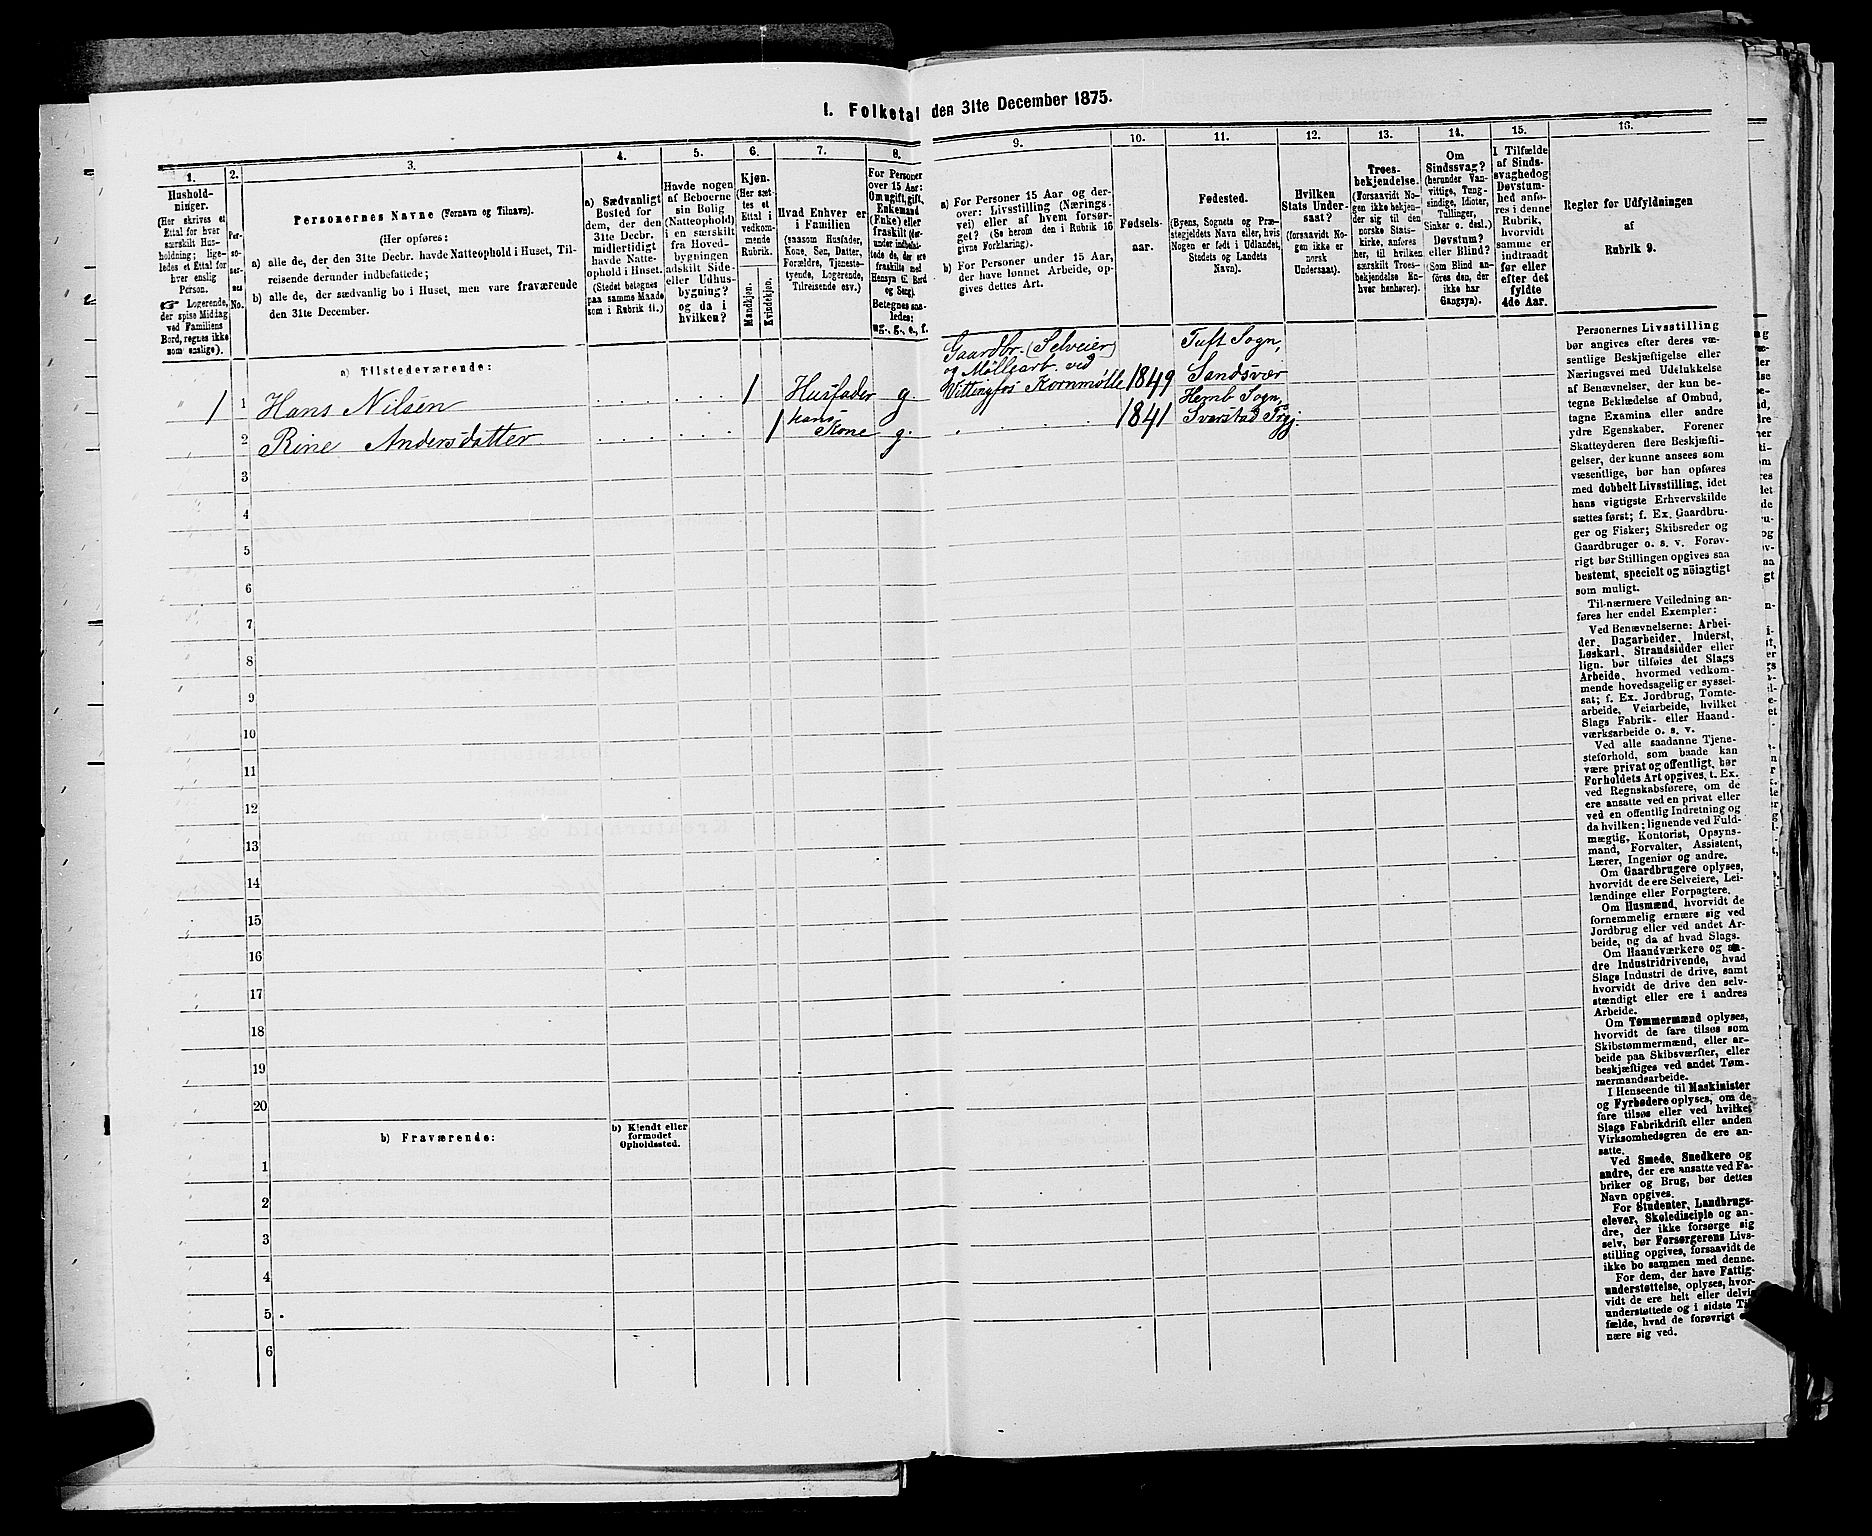 I. Folketal den 31te December 1875.
1.
2.
3.
4.
5.
6.
7.
8.
9.
10.
11.
12.
13.
14.
15.
16.
Hushold-
ninger.
(Her skrives et
Ettal for hver
særskilt Hus-
holdning; lige-
ledes et Ettal for
hver enslig
Person.
☞ Logerende,
der spise Middag
ved Familiens
Bord, regnes ikke
som enslige).
Per-
so-
ner-
nes
No.
Personernes Navne (Fornavn og Tilnavn).
(Her opføres:
a) alle de, der den 31te Decbr. havde Natteophold i Huset, Til-
reisende derunder indbefattede;
b) alle de, der sædvanlig bo i Huset, men vare fraværende
den 31te December.
a) Sædvanligt
Bosted for
dem, der den
31te Decbr.
midlertidigt
havde Natte-
ophold i Huset.
(Stedet betegnes
paa samme Maade
som i Rubrik 11.)
Havde nogen
af Beboerne
sin Bolig
(Natteophold)
i en særskilt
fra Hoved-
bygningen
adskilt Side-
eller Udhus-
bygning?
og da i
hvilken?
Kjøn.
(Her sæt-
tes et
Ettal i
vedkom-
mende
Rubrik.
Mandkjøn.
Kvindekjøn.
Hvad Enhver er
i Familien
(saasom Husfader,
Kone, Søn, Datter,
Forældre, Tjeneste-
tyende, Logerende,
Tilreisende osv.)
For Personer
over 15 Aar:
Om ugift, gift,
Enkemand
(Enke) eller
fraskilt (der-
under indbefat-
tede de, der ere
fraskilte med
Hensyn til Bord
og Seng).
Betegnes saa-
ledes:
ug., g., e., f.
a) For Personer 15 Aar og der-
over: Livsstilling (Nærings-
vei) eller af hvem forsør-
get? (Se herom den i Rubrik 16
givne Forklaring).
b) For Personer under 15 Aar,
der have lønnet Arbeide, op-
gives dettes Art.
Fødsels-
aar.
Fødested.
(Byens, Sognets og Præ-
stegjeldets Navn eller, hvis
Nogen er født i Udlandet,
Stedets og Landets
Navn).
Hvilken
Stats Under-
saat?
(forsaavidt No-
gen ikke er
norsk
Undersaat).
Troes-
bekjendelse.
(Forsaavidt No-
gen ikke bekjen-
der sig til den
norske Stats-
kirke, anføres
her, til hvilken
særskilt Troes-
bekjendelse En-
hver henhører).
Om
Sindssvag?
(herunder Van-
vittige, Tung-
sindige, Idioter,
Tullinger,
Sinker o. desl.)
Døvstum?
eller Blind?
(Som Blind an-
føres den, der
ikke har
Gangsyn).
I Tilfælde
af Sinds-
svaghed og
Døvstum-
hed anfø-
res i denne
Rubrik,
hvorvidt
samme er
indtraadt
før eller
efter det
fyldte
4de Aar.
Regler for Udfyldningen
af
Rubrik 9.
a) Tilstedeværende:
Gaardbr. (Selveier)
og Møllearb. ved
Tuft Sogn,
1 1 Hans Nilsen 1 Husfader g. Vittingfos Kornmølle 1849 Sandsvær
2 Rine Andersdatter 1 hans Kone g. 1841 Hemb Sogn, Svarstad Prgj.
3
4
5
6
7
8
9
10
11
12
13
14
15
16
17
18
19
20
b) Fraværende:
b) Kjendt eller
formodet
Opholdssted.
1
2
3
4
5
6
Personernes Livsstilling
bør angives efter deres væ-
sentlige Beskjæftigelse eller
Næringsvei med Udelukkelse
af Benævnelser, der kun be-
tegne Beklædelse af Ombud,
tagne Examina eller andre
ydre Egenskaber. Forener
Skatteyderen flere Beskjæfti-
gelser, der kunne ansees som
væsentlige, bør han opføres
med dobbelt Livsstilling, idet
hans vigtigste Erhvervskilde
sættes først; f. Ex. Gaardbru-
ger og Fisker; Skibsreder og
Gaardbruger o. s. v. Forøv-
rigt bør Stillingen opgives saa
bestemt, specielt og nöiagtigt
som muligt.
Til nærmere Veiledning an-
føres her endel Exempler:
Ved Benævnelserne: Arbei-
der, Dagarbeider, Inderst,
Løskarl, Strandsidder eller
lign. bør tilføies det Slags
Arbeide, hvormed vedkom-
mende hovedsagelig er syssel-
sat; f. Ex. Jordbrug, Tomte-
arbeide, Veiarbeide, hvilket
Slags Fabrik- eller Haand-
værksarbeide o. s. v.
Ved alle saadanne Tjene-
steforhold, som baade kan
være privat og offentligt, bør
Forholdets Art opgives, t. Ex.
ved Regnskabsførere, om de
ere ansatte ved en privat eller
ved en offentlig Indretning og
da hvilken; lignende ved Fuld-
mægtig, Kontorist, Opsyns-
mand, Forvalter, Assistent,
Lærer, Ingeniør og andre.
Om Gaardbrugere oplyses,
hvorvidt de ere Selveiere, Lei-
lændinge eller Forpagtere.
Om Husmænd, hvorvidt de
fornemmelig ernære sig ved
Jordbrug eller ved andet Ar-
beide, og da af hvad Slags.
Om Haandværkere og an-
dre Industridrivende, hvad
Slags Industri de drive, samt
hvorvidt de drive den selv-
stændigt eller ere i andres
Arbeide.
Om Tømmermænd oplyses,
hvorvidt de fare tilsøs som
Skibstømmermænd, eller ar-
beide paa Skibsværfter, eller
beskjæftiges ved andet Tøm-
mermandsarbeide.
I Henseende til Maskinister
og Fyrbødere oplyses, om de
fare tilsøs eller ved hvilket
Slags Fabrikdrift eller anden
Virksomhedsgren de ere an-
satte.
Ved Smede, Snedkere og
andre, der ere ansatte ved Fa-
briker og Brug, bør dettes
Navn opgives.
For Studenter, Landbrugs-
elever, Skoledisciple og an-
dre, der ikke forsørge sig
selv, bør Forsørgerens Livs-
stilling opgives, forsaavidt de
ikke bo sammen med denne.
For dem, der have Fattig-
understøttelse, oplyses, hvor-
vidt de ere helt eller delvis
understøttede og i sidste Til-
fælde, hvad de forøvrigt er-
nære sig ved.